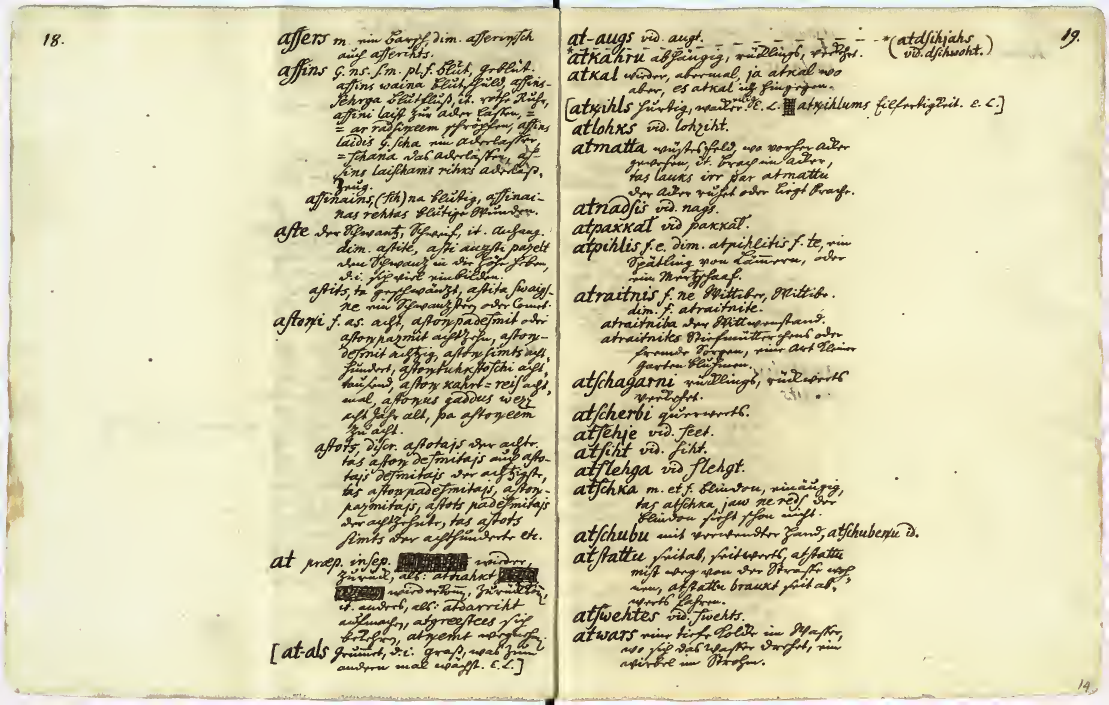 18.
assers m. ein Barsch, dim. asserihsch
auch asserihts.
assins g. ns. s. m. pl. s. blut, geblüt.
assins waina blutschuld assins-
sehrga blutfluß, it. rothe Ruhr,
assini laist zur ader lassen, =
= ar radsineem schröpfen, assins
laidis g. scha ein aderlasser
= schana das aderlassen, as-
sins laischams rihks aderlaß-
zeug.
assinains, (sch) na blutig, assinai-
nas rehtas blutige Wunden.
aste der Schwantz, Schweif, it. anhang.
dim. astite, asti augsti pazelt
den Schwantz in die Höhe heben,
d. i. sich viel einbilden.
astits, te geschwäntzt, astita swaigs-
ne ein Schwantzstern oder Comet.
astoņi f. as. acht, astoņpadesmit oder
astoņpazmit achtzehn, astoņ-
desmit achtzig, astoņ simts acht
hundert, astoņ tuhkstoschi acht
tausend, astoņ kahrt = reis acht
mal, astoņus gaddus wez
acht Jahr alt, pa astoņeem
zu acht.
astots, discr. astotajs der achte.
tas astoņ desmitajs auch asto-
tajs desmitajs der achtzigste,
tas astoņpadesmitajs, astoņ-
pazmitajs, astots padesmitajs
der achtzehnte, tas astots
simts der achthunderte etc.
at præp. insep. wieder,
zurück, als: atnahkt
wiederkom̄, zurückkom̄,
it. anders, als: atdarriht
aufmachen, atgreestees sich
bekehren, atņemt wegnehm.
[at-als Grum̄et, d. i. graß, was zum
andern mal wächst. E. L.]
19.
at-augs vid. augt. *(atdsihjahs
vid. dsihwoht.)
*atkahru abhängig, rücklings, verkehrt.
atkal wieder, abermal, ja atkal wo
aber, es atkal ich hingegen.
[atķihls hurtig, wacker E. L. atķihlums Eilfertigkeit. E. L.]
atlohks vid. lohziht.
atmatta wüstes Feld, wo vorher acker
gewesen, it. brach im acker,
tas lauks irr par atmattu
der acker ruhet oder liegt Brache.
atnadsis vid. nags.
atpakkaļ vid pakkaļ.
atpihlis f. e. dim. atpihlitis f. te, ein
Spätling von Lämmern, oder
ein Mertzschaaf.
atraitnis f. ne Wittiber, Wittibe.
dim. f. atraitnite.
atraitniba der Wittwenstand.
atraitniks Stiefmütterchens oder
fremde Sorgen, eine Art kleiner
garten bluhmen.
atschagarni rücklings, rückwerts
verkehrt.
atscherbi querwerts.
atsehje vid. seet.
atsiht vid. siht.
atslehga vid slehgt.
atschka m. et f. blinden, einäugig,
tas atschka jaw ne reds der
blinden sieht schon nicht.
atschubu mit verwendter Hand, atschubeņu id.
atstattu seitab, seitwerts, atstattu
mist weg von der Strasse woh
nen, atstattu braukt seit ab-
werts fahren.
atswehtes vid. swehts.
atwars eine tiefe Kolde im Wasser,
wo sich das wasser drehet, ein
wirbel im Strohm.
14